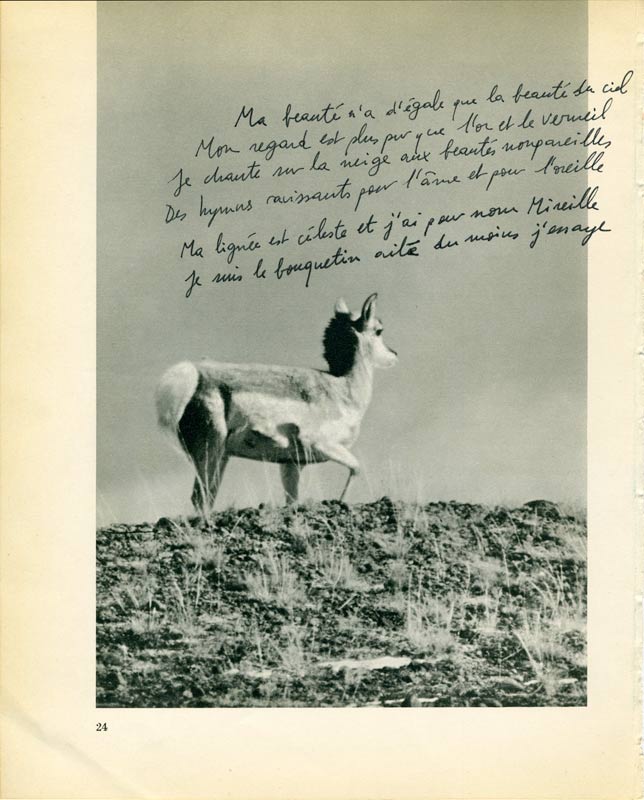 Ma beauté n'a d'égale que la beauté du ciel
Mon regard est plus pur que l'or et le vermeil
Je chante sur la neige aux beautés nonpareilles
Des hymnes ravissants pour l'âme et pour l'oreille
Ma lignée est céleste et j'ai pour nom Mireille
Je suis le bouquetin ailé du moins j'essaye
24